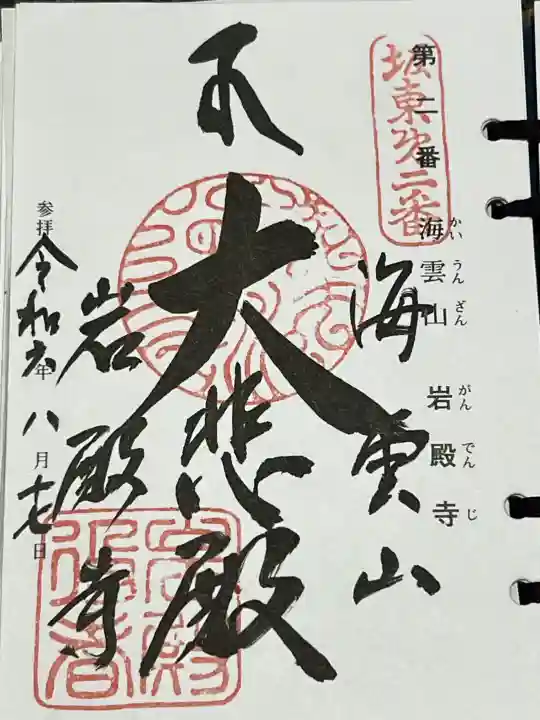 坂東第二番
第二番 海雲山 岩殿寺
かいうんざん がんでんじ
海雲山
大悲殿
岩殿寺
参拝 令和六年八月十七日